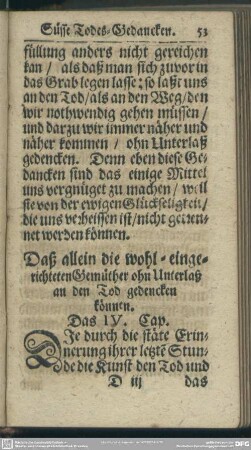 Süsse Todes-Gedancken. 53
füllung anders nicht gereichen
kan / als daß man sich zuvor in
das Grab legen lasse: so laßt uns
an den Tod / als an den Weg / den
wir nothwendig gehen müssen /
und darzu wir immer näher und
näher kommen / ohn Unterlaß
gedencken. Denn eben diese Ge-
dancken sind das einige Mittel
uns vergnüget zu machen / weil
sie von der ewigen Glückseligkeit /
die uns verheissen ist / nicht getren-
net werden können.
Daß allein die wohl-einge-
richteten Gemüther ohn Unterlaß
an den Tod gedencken
können.
Das IV. Cap.
Die durch die stäte Erin-
nerung ihrer letztē Stun-
de die Kunst den Tod und
D iij das